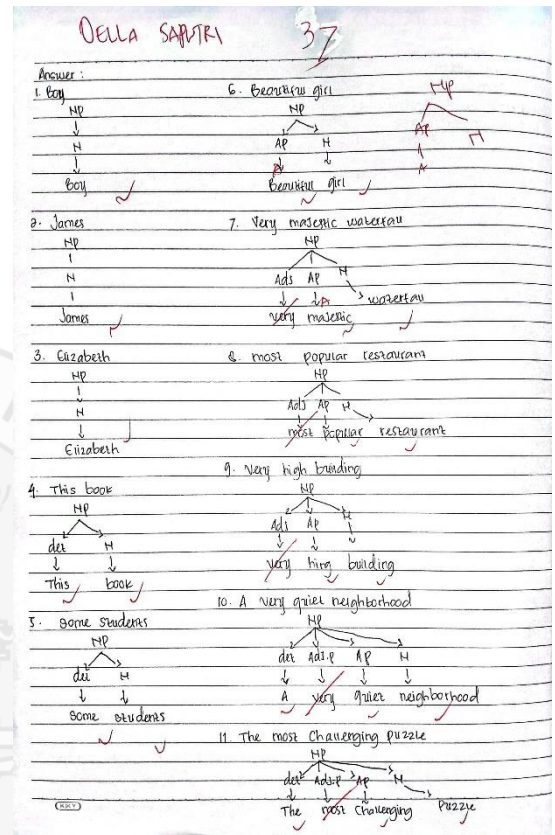 DELLA SAPUTRI 37
Answer :
1. Boy
NP
N
Boy
2. James
NP
N
James
3. Elizabeth
NP
N
Elizabeth
4. This book
NP
det N
This book
5. Some students
NP
det N
Some students
6. Beautiful girl
NP
AP N
A
Beautiful girl
NP
AP N
A
7. Very majestic waterfall
NP
Adj AP N
A
very majestic waterfall
8. most popular restaurant
NP
Adj AP N
most popular restaurant
9. Very high building
NP
Adj AP N
very hing building
10. A very quiet neighborhood
NP
det Adj.P AP N
A very quiet neighborhood
11. The most Challenging puzzle
NP
det Adj.P AP N
The most Challenging Puzzle
KKY